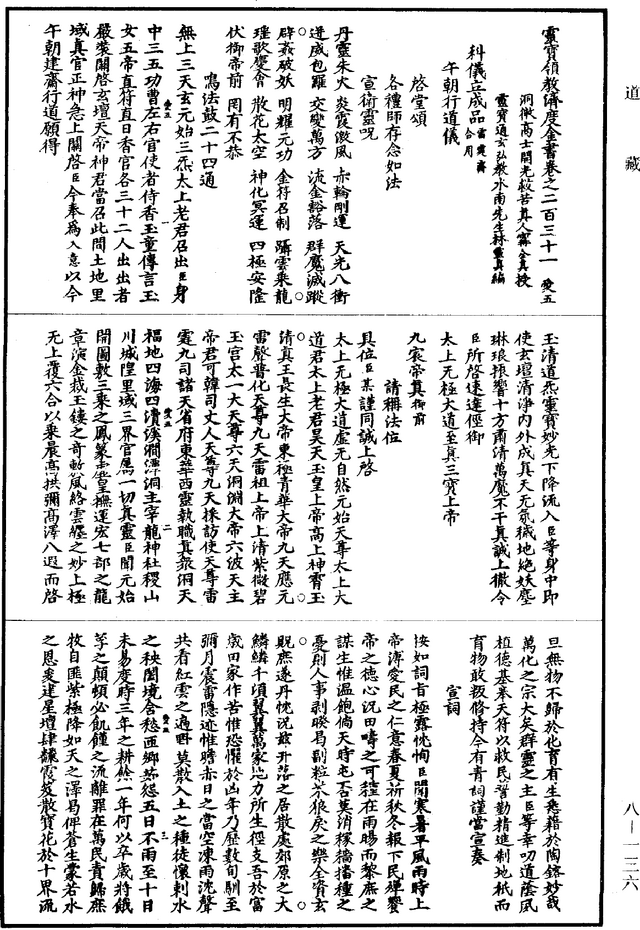 道藏
靈寶領教濟度金書卷之二百三十一 愛五
洞微高士開光救苦真人甯全真授
靈寶通玄弘教水南先生林靈真編
科儀立成品 雷霆齋合用
午朝行道儀
啓堂頌
各禮師存念如法
宣衛靈呪
丹靈朱火 炎霞激風 赤輪剛運 天光八衝
迸威包羅 交變萬方 流金豁落 群魔滅蹤
辟姦破妖 明耀元功 金符召制 躡雲乘龍
瑤歌慶會 散花太空 神化冥運 四極安隆
伏御帝前 罔有不恭
鳴法鼓二十四通
無上三天玄元始三炁太上老君召出臣身
中三五功曹左右官使者侍香玉童傳言玉
女五帝直符直日香官各三十二人出出者
嚴裝關啓玄壇天帝神君當召此間土地里
域真官正神急上關啓臣今奉為入意以今
午朝建齋行道願得
玉清道炁靈寶妙光下降流入臣等身中即
使玄壇清淨內外成真天无氛穢地絕妖塵
琳琅振響十方肅清萬魔不干真誠上徹令
臣所啓速達徑御
太上无極大道至真三寶上帝
九宸帝真御前
請稱法位
具位臣某謹同誠上啓
太上无極大道虛无自然元始天尊太上大
道君太上老君昊天玉皇上帝高上神霄玉
清真王長生大帝東極青華大帝九天應元
雷聲普化天尊九天雷祖上帝上清紫微碧
玉宮太一大天尊六天洞淵大帝六波天主
帝君可韓司丈人天尊九天採訪使天尊雷
霆九司諸天省府東華西靈執職真衆洞天
福地四海四瀆溪澗潭洞主宰龍神社稷山
川城隍里域三界官屬一切真靈臣聞元始
開圖敷三乘之鳳篆玉皇撫運宏七部之龍
章演金裁玉鏤之奇數風絡雲纏之妙上極
无上覆六合以乘晨高拱彌高澤八遐而啓
旦無物不歸於化育有生悉藉於陶鎔妙哉
萬化之宗大矣群靈之主臣等幸叨道蔭夙
植德基奉天符以救民誓勤精進制地祇而
育物敢蝦修持今有青詞謹當宣奏
宣詞
按如詞旨極露忱恂臣聞寒暑平風雨時上
帝溥愛民之仁意春夏祈秋冬報下民殫饗
帝之德心況田疇之可穫在雨暘而黎庶之
謀生惟溫飽倘天時屯否莫消稼穡播種之
憂則人事剥暌曷副粒茶狼戾之樂全資玄
貺庶遂丹忱況茲升落之居散處郊原之大
鱗鱗千頃翼翼萬家地力所生徑支吾於富
歲田家作苦惟恐懼於凶年乃歷數旬馴至
彌月震雷隱迹惟瞻赤日之當空凍雨沈聲
共看紅雲之遍野莫散入土之種徒懷刺水
之秧闔境含愁西鄉茹怨五日不雨至十日
未易度時三年之耕餘一年何以卒歲將餓
莩之顛頓必飢饉之流離罪在萬民責歸庶
牧自匪紫極降如天之澤曷俾蒼生蒙若水
之恩爰建星壇肆馡霞笈散寶花於十界流
八-一三六